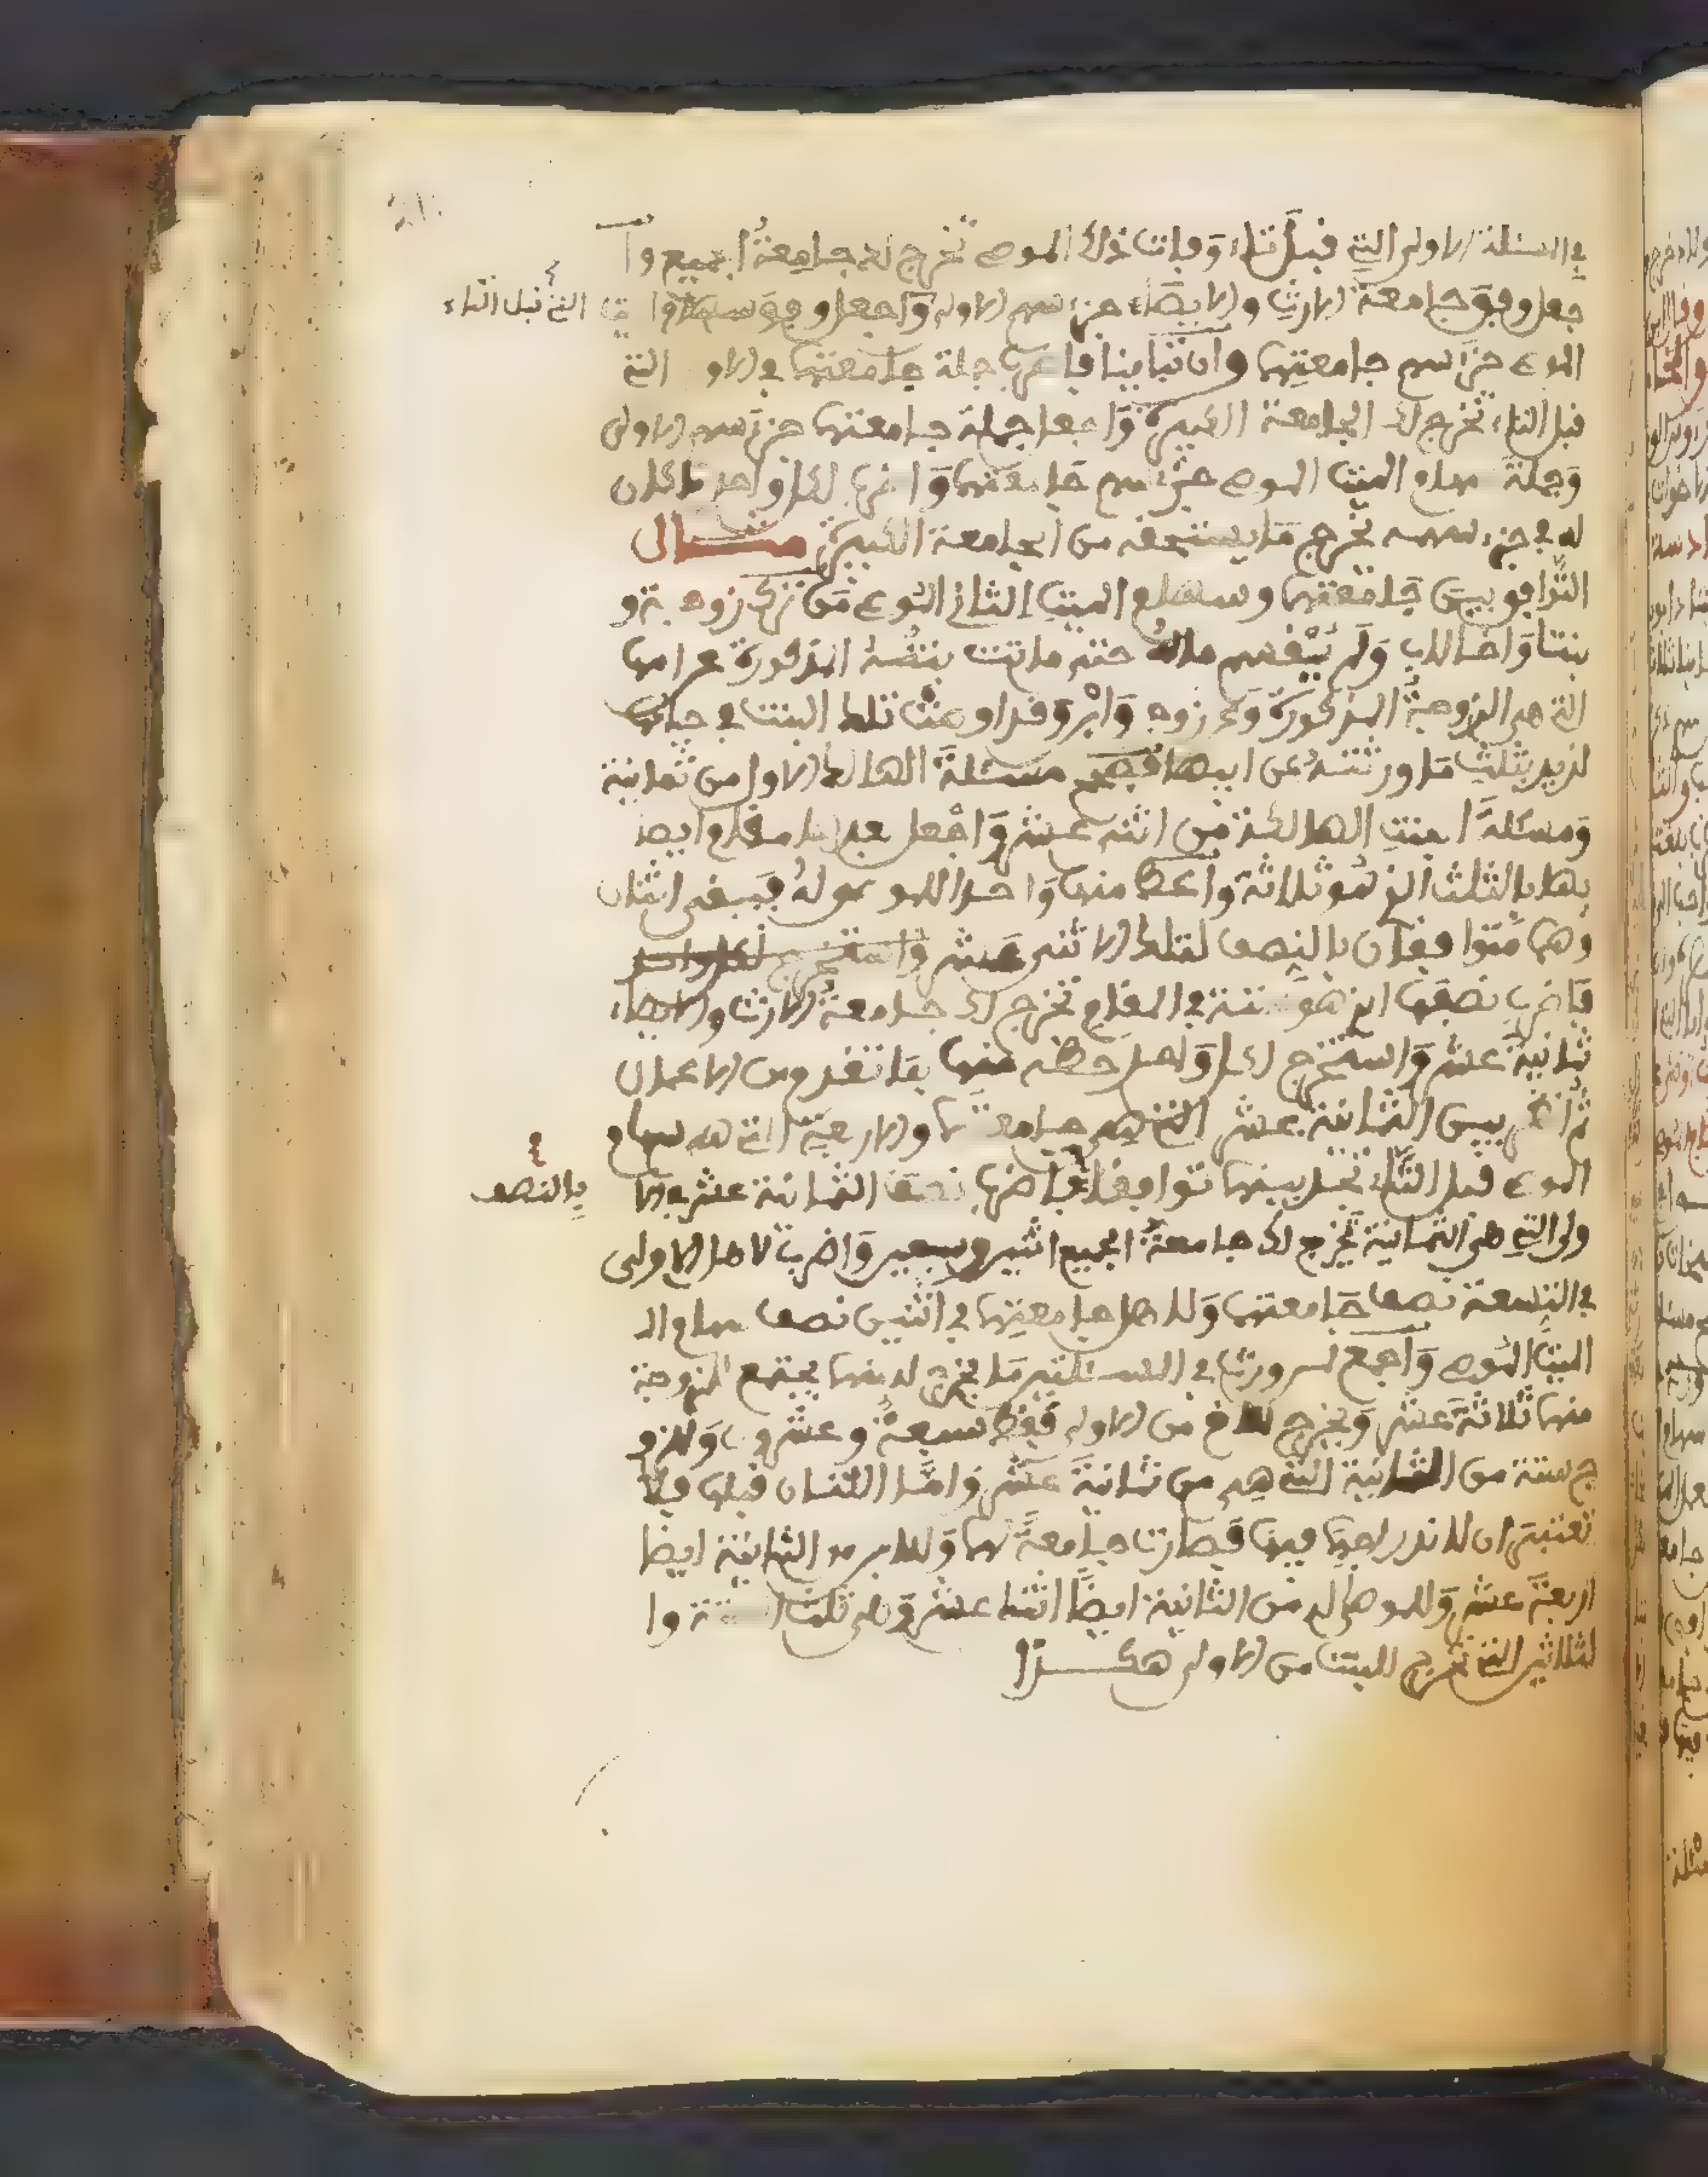 في المسئلة الاولى التي قبل تاء وفات ذلك الموصي تخرج لك جامعة الجميع وا
جعل وفق جامعة الارث والايصاء جزء سهم الاولى واجعل وفق سهام
التي قبل التاء
الموصي جزء سهم جامعتها وان تباينا فاضرب جملة جامعتها في الاولى التي
قبل التاء تخرج لك الجامعة الكبيرة واجعل جملة جامعتها جزء سهم الاولى
وجملة سهام الميت الموصي جزء سهم جامعتها واضرب لكل واحد ما كان
له في جزء سهمه يخرج ما يستحقه من الجامعة الكبيرة مثال
التوافق بين جامعتها وسهام الميت الثاني الموصي من ترك زوجة و
بنتا واخا لاب ولم يقسم ماله حتى ماتت بنته المذكورة عن امها
التي هي الزوجة المذكورة وعن زوج وابن وقد اوصت تلك البنت في حياتها
لزيد بثلث ما ورثته عن ابيها فتصح مسئلة الهالك الاول من ثمانية
ومسئلة البنت الهالكة من اثني عشر واجعل مقام ايصا
بها بالثلث الذي هو ثلاثة واعط منها واحدا للموصى له فيبقى اثنان
وهما متوافقان بالنصف لتلك الاثني عشر واستخرج لكل واحد
فاضرب نصفها الذي هو ستة في المقام تخرج لك جامعة الارث والايصاء
ثمانية عشر واستخرج لكل واحد حظه منها بما تقدم من الاعمال
ثم انظر بين الثمانية عشر التي هي جامعتها والاربعة التي هي سهام
الموصي قبل التاء تجد بينهما توافقا فاضرب نصف الثمانية عشر في الا
بالنصف
ولى التي هي الثمانية تخرج لك جامعة الجميع اثنين وسبعين واضرب لاهل الاولى
في التسعة نصف جامعتها ولاهل جامعتها في اثنين نصف سهام ال
الميت الموصي واجمع لمن ورث في المسئلتين ما يخرج له منهما يجتمع للزوجة
منهما ثلاثة عشر ويخرج للاخ من الاولى فقط سبعة وعشرون وللزو
ج ستة من الثانية التي هي من ثمانية عشر واما اللتان قبلها فلا
تعتبر ان لاندراجهما فيها فصارت جامعة لهما وللابن من الثانية ايضا
اربعة عشر وللموصى له من الثانية ايضا اثنا عشر وهي ثلث الستة وا
لثلاثين التي تخرج للبنت من الاولى هكذا